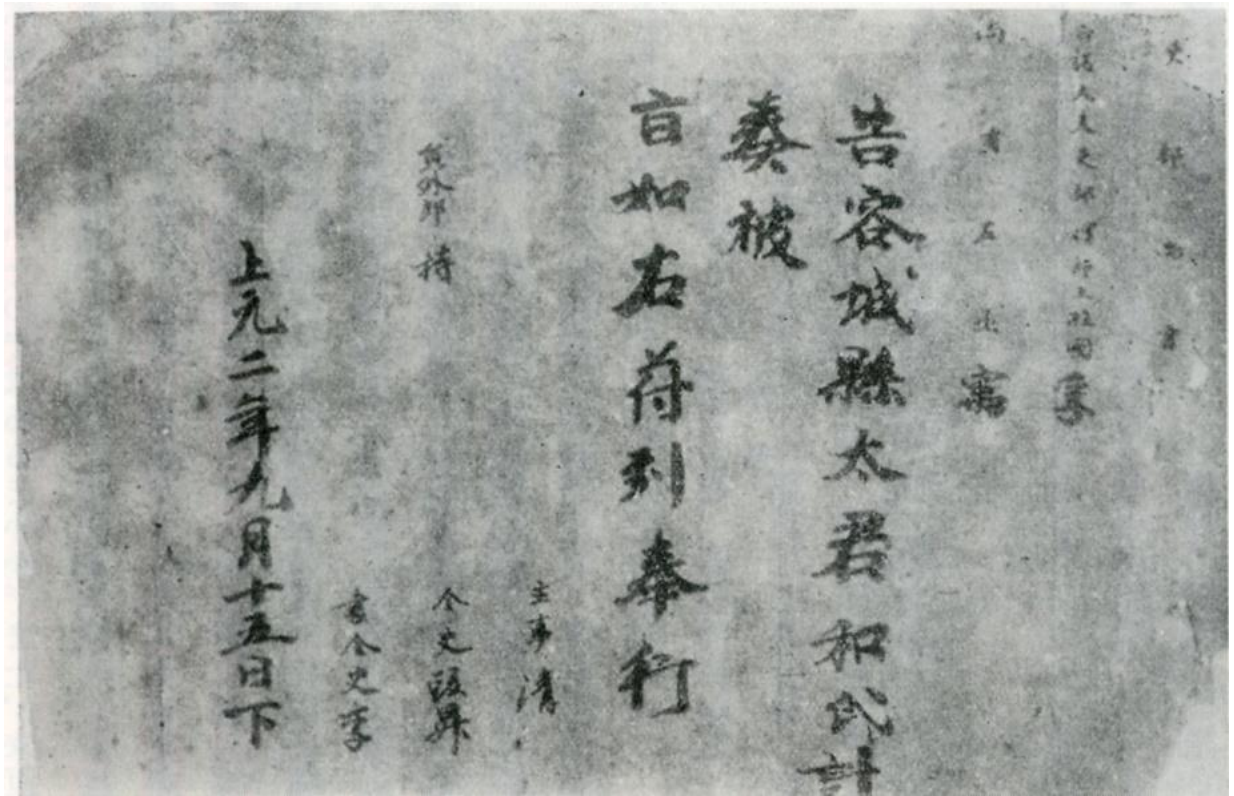 吏部尚書
議大夫吏部侍郎上柱國李
尚書左丞寓
告容城縣太君和氏計
奏被
旨如右符到奉行
主事清
員外郎持
令史段昇
書令史李
上元二年九月十五日下